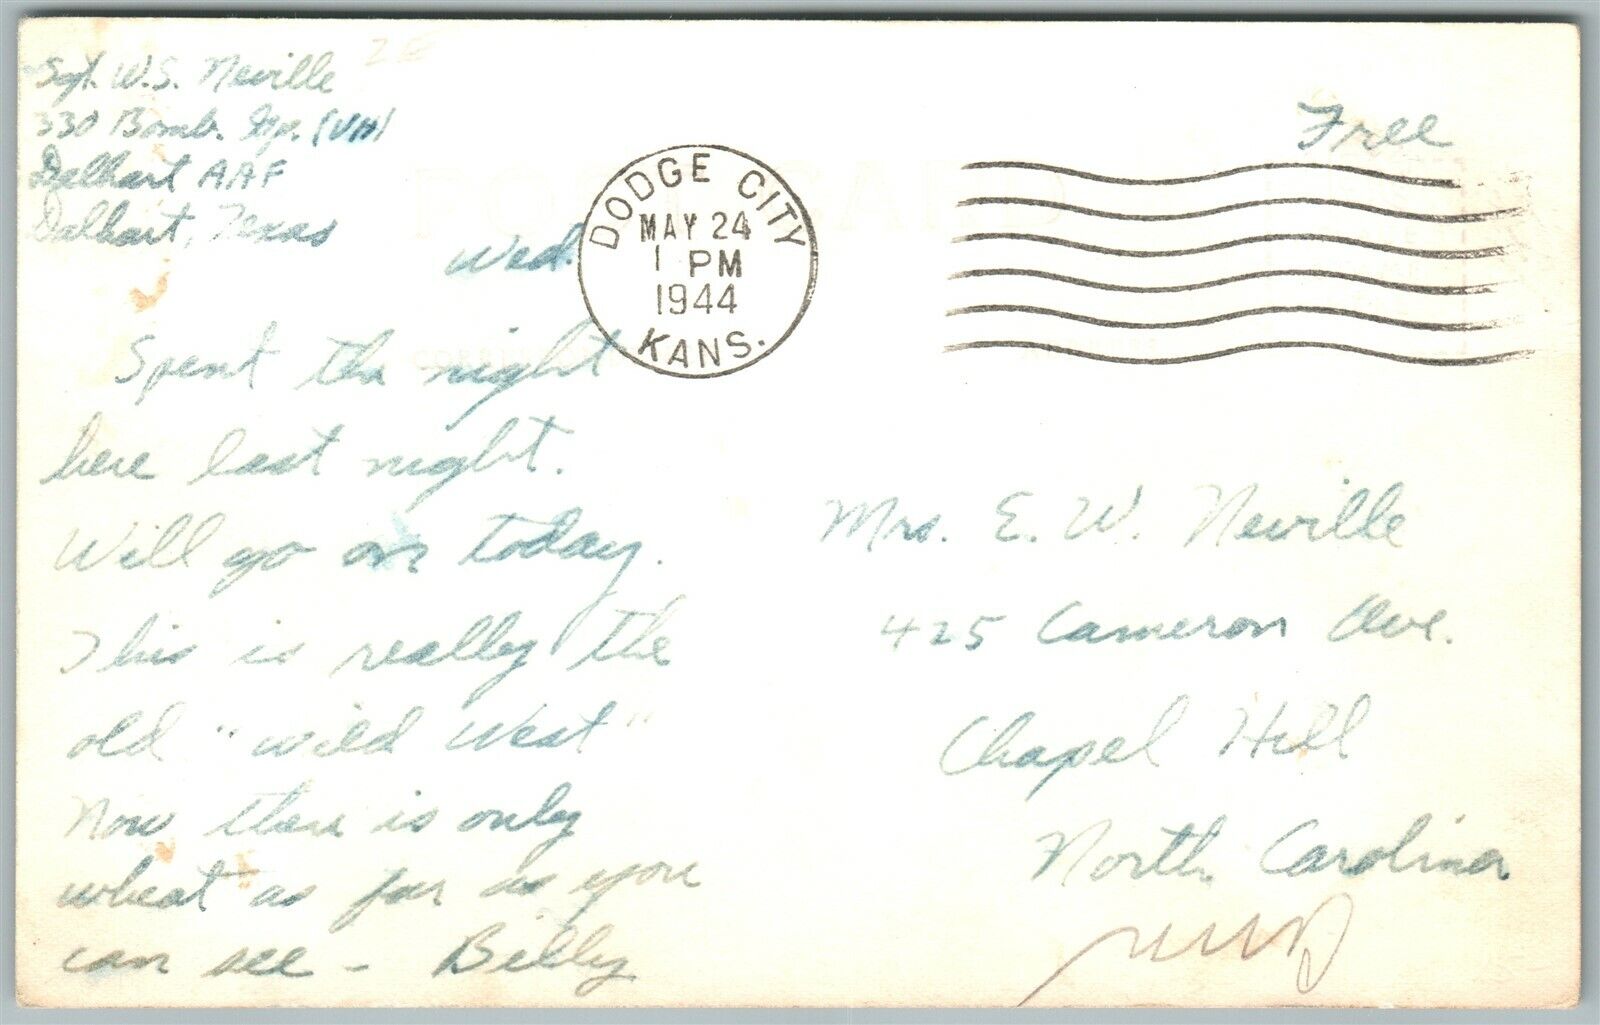 Sgt. W.S. Neville
330 Bomb. Gp. (VH)
Dalhart AAF
Dalhart, Texas
Free
DODGE CITY
MAY 24
1 PM
1944
KANS.
Wed.
Spent the night
here last night.
Will go on today.
This is really the
old "wild West"
Now there is only
wheat as far as you
can see - Billy
Mrs. E. W. Neville
425 Cameron Ave.
Chapel Hill
North Carolina